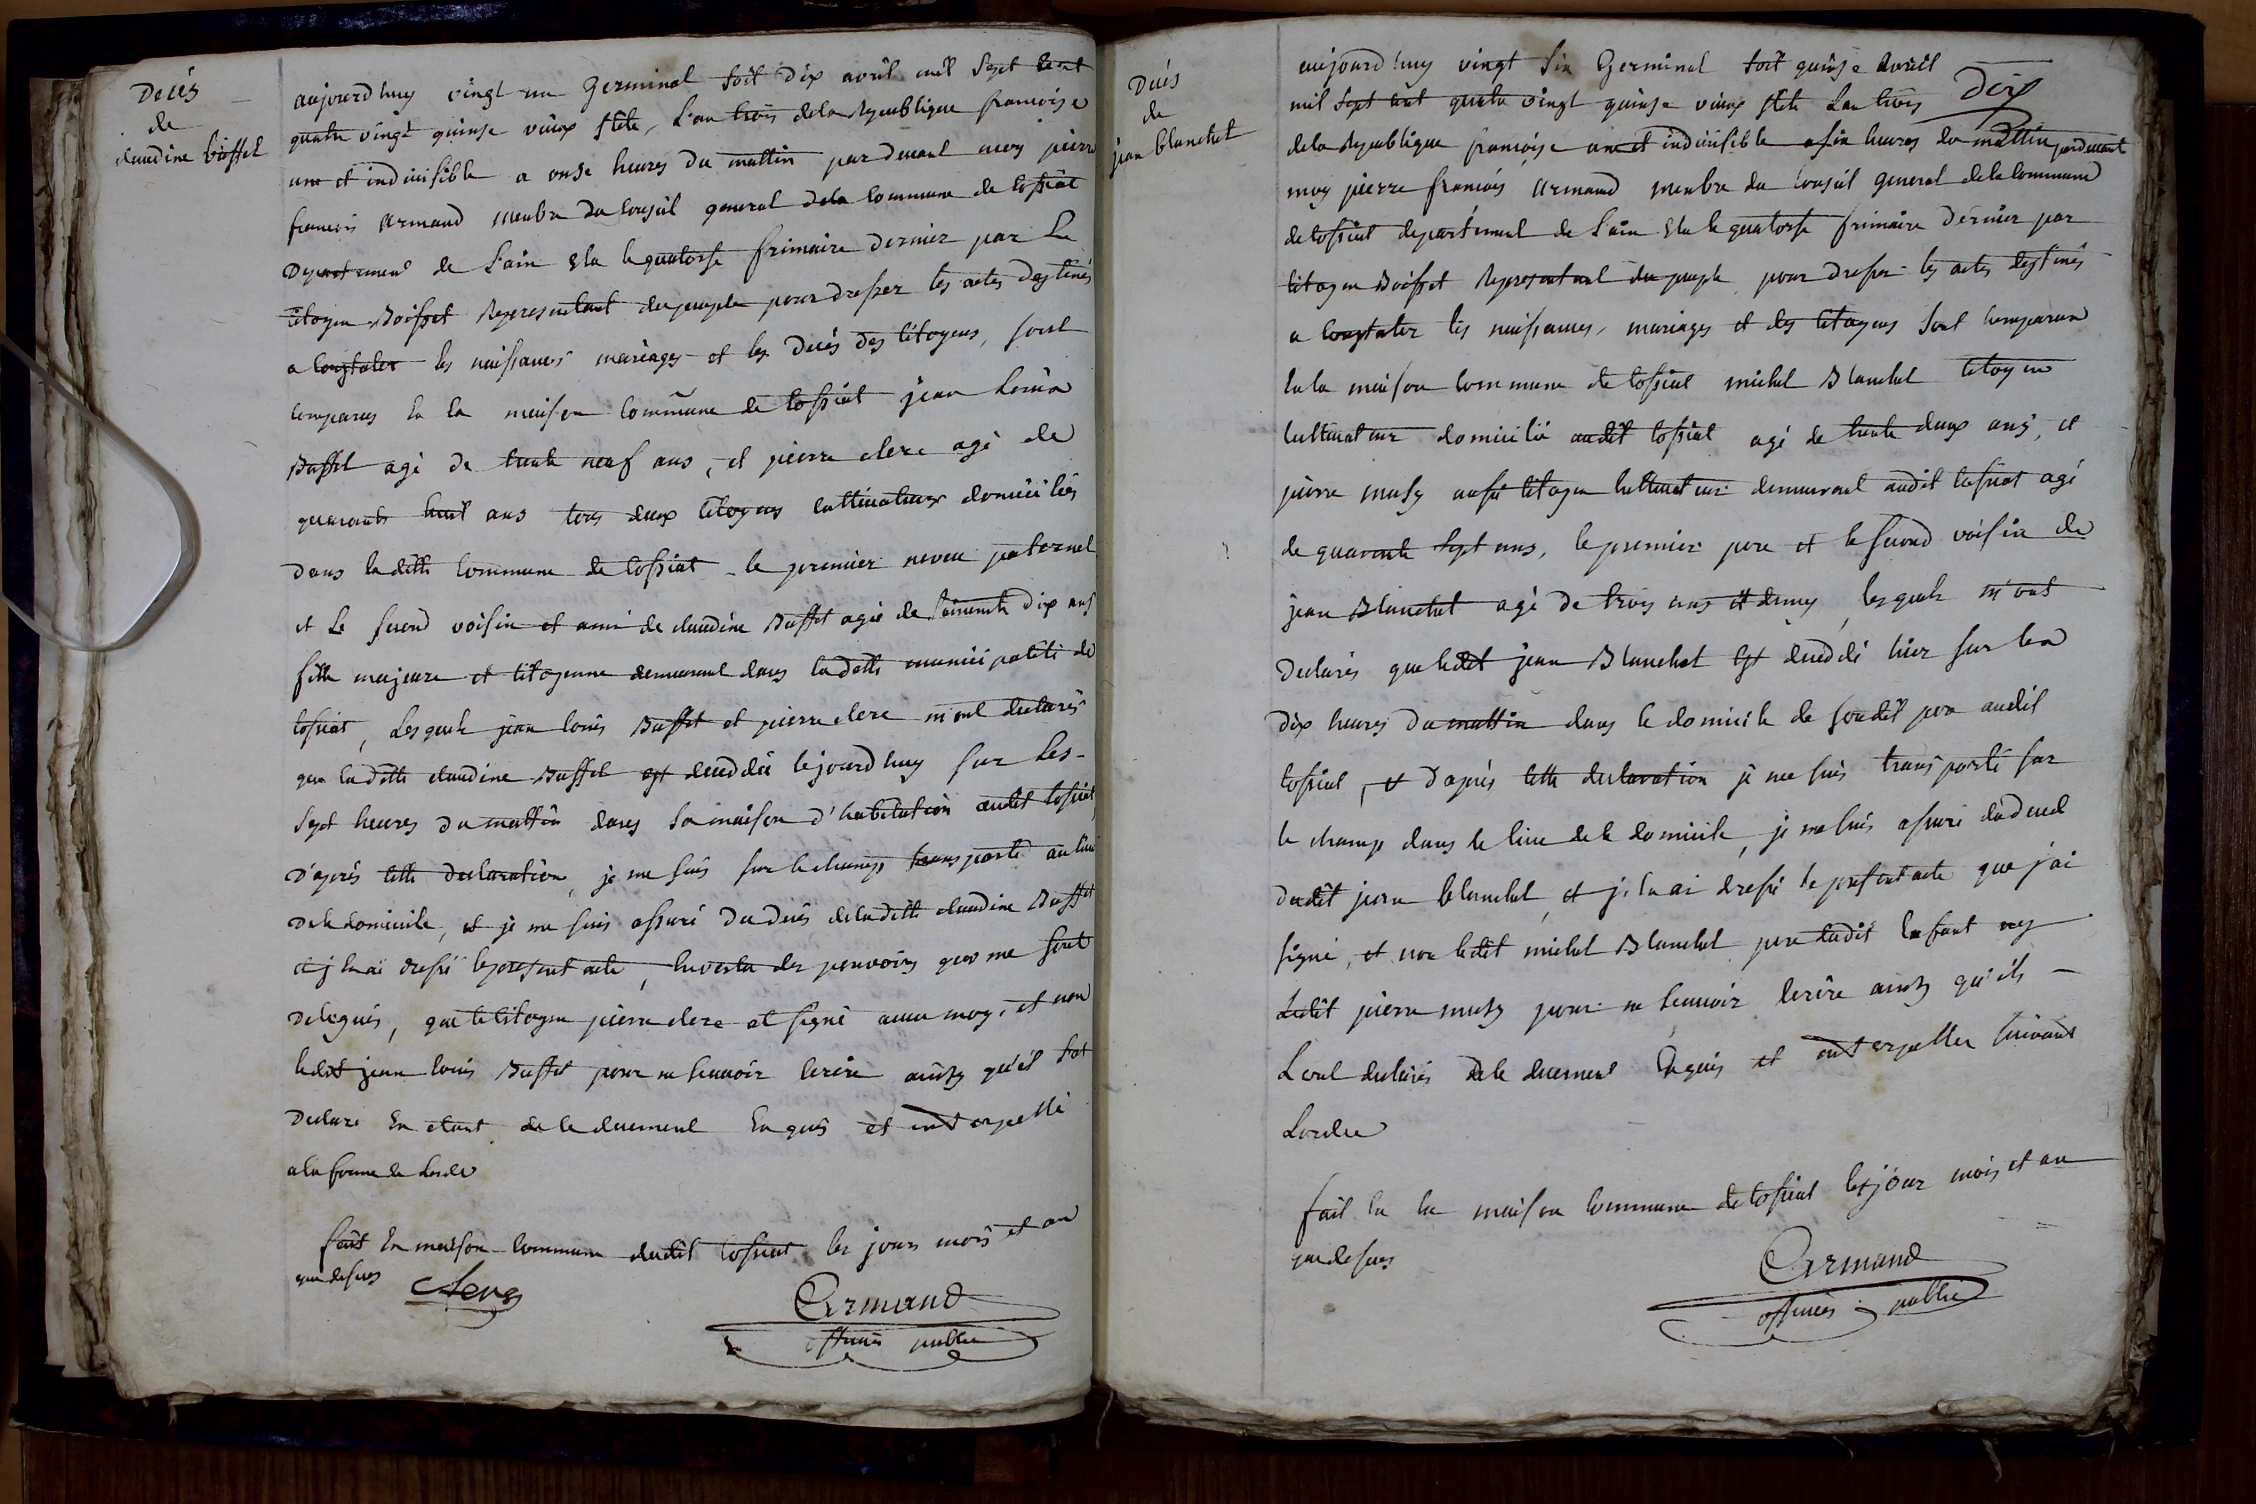 Décés
de
claudine buffet
aujourd huy vingt un Germinal soit dix avril mil sept cent
quatre vingt quinse vieux stile, L'an trois de la Republique françoise
une et indivisible a onse heures du mattin par devant moy pierre
françois Armand membre du Conseil general de la Commune de Cossiat
Departement de L'ain Elu le quatorse frimaire dernier par Le
Citoyen Boisset Representant du peuple pour dresser les actes destinés
a Constater les naissances mariages et les Decés des Citoyens, sont
comparus En la maison Commune de Cossiat jean Louis
Buffet agé de trente neuf ans, et pierre clerc agé de
quarante huit ans tous deux Citoyens cultivateurs domiciliés
dans laditte Commune de Cossiat le premier neveu paternel
et Le second voisin et ami de claudine Buffet agée de soixante dix ans
fille majeure et Citoyenne demeurant dans laditte municipalité de
Cossiat, Lesquels jean Louis Buffet et pierre clerc m'ont declarés
que laditte claudine Buffet est deceddée Cejourdhuy sur Les
sept heures du mattin dans sa maison d'habitation audit Cossiat
D'aprés Cette declaration, je me suis sur le champ transporté au lieu
de Ce domicile, et je me suis assuré du Decés de laditte claudine Buffet
et j'En ai dressé le present acte, En vertu des pouvoirs qui me sont
delegués, que le Citoyen pierre clerc et signé avec moy, et non
ledit jean Louis Buffet pour ne sçavoir Ecrire ainsy qu'il l'at
declaré En etant de Ce duement Enquis et interpellé
a la forme de Lorde
fait En maison Commune dudit Cossiat les jours mois et an
que dessus
Clerc
Armand
officier public
Décés
de
jean blanchet
aujourd huy vingt six Germinal soit quinse avril
Dix
mil sept cent quatre vingt quinse vieux stile L'an trois
de la Republique françoise une et indivisible a six heures du mattin pardevant
moy pierre françois Armand membre du Conseil general de la Commune
de Cossiat departement de L'ain Elu le quatorse frimaire dernier par
Citoyen Boisset Representant du peuple pour dresser les actes destinés
a Constater les naissances, mariages et des Citoyens sont Comparus
En la maison Commune de Cossiat michel Blanchet Citoyen
Cultivateur domicilié audit Cossiat agé de trente deux ans, et
pierre musy aussi Citoyen Cultivateur demeurant audit Cossiat agé
de quarante sept ans, le premier pere et le second voisin de
jean Blanchet agé de trois ans et demy, lesquels m'ont
declarés que ledit jean Blanchet est deceddé hier sur les
dix heures du mattin dans le domicile de sondit pere audit
Cossiat, et d'aprés Cette declaration je me suis transporté sur
le champ dans le lieu de Ce domicile, je me suis assuré du deced
dudit jean blanchet, et j'En ai dressé le present acte que j'ai
signé, et non ledit michel Blanchet pere dudit Enfant ny
Ledit pierre musy pour ne sçavoir Ecrire ainsy qu'ils
L'ont declarés de Ce duement Enquis et interpellés suivant
Lordre
fait En la maison Commune de Cossiat les jour mois et an
que dessus
Armand
officier public